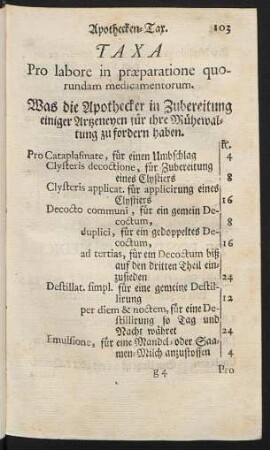 Apothecken-Tax. 103
TAXA
Pro labore in præparatione quo-
rundam medicamentorum.
Was die Apothecker in Zubereitung
einiger Artzeneyen für ihre Mühewal-
tung zu fordern haben.
Pro Cataplasmate, für einen Umbschlag 4
Clysteris decoctione, für Zubereitung
eines Clystiers 8
Clysteris applicat. für applicirung eines
Clystiers 16
Decocto communi, für ein gemein De-
coctum, 8
duplici, für ein gedoppeltes De-
coctum, 16
ad tertias, für ein Decoctum biß
auf den dritten Theil ein-
zusieden 24
Destillat. simpl. für eine gemeine Destil-
lirung 12
per diem & noctem, für eine De-
stillirung so Tag und
Nacht währet 24
Emulsione, für eine Mandel- oder Saa-
men-Milch anzustossen 4
g 4 Pro